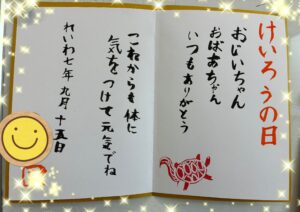 けいろうの日
おじいちゃん
おばあちゃん
いつもありがとう
これからも体に
気をつけて元気でね
れいわ七年九月十五日